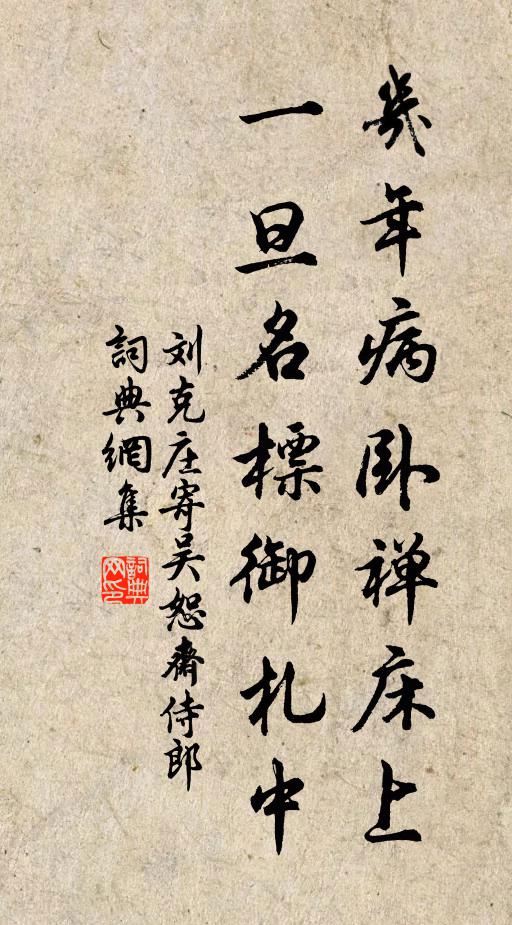 幾年病卧禅床上
一旦名標御札中
刘克庄寄吴恕齋侍郎
詞典網集
詞典网印